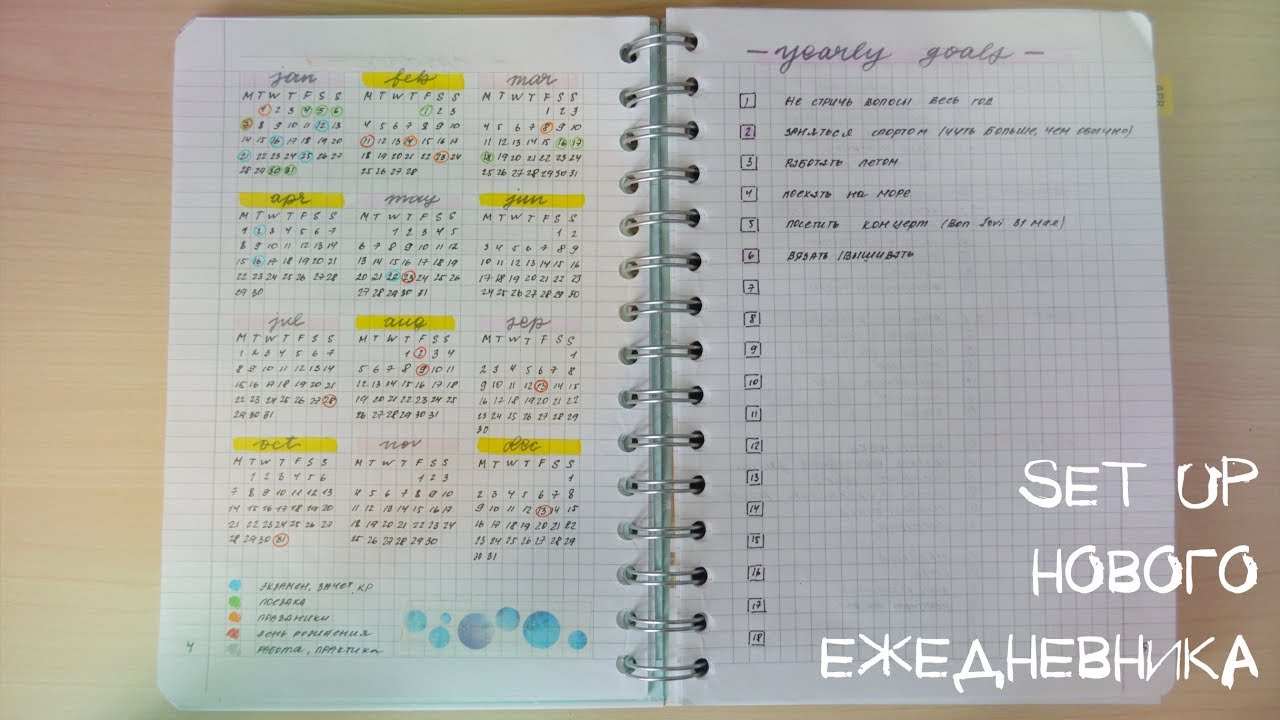 jan
M T W T F S S
1 2 3 4 5 6
7 8 9 10 11 12 13
14 15 16 17 18 19 20
21 22 23 24 25 26 27
28 29 30 31
feb
M T W T F S S
1 2 3
4 5 6 7 8 9 10
11 12 13 14 15 16 17
18 19 20 21 22 23 24
25 26 27 28
mar
M T W T F S S
1 2 3
4 5 6 7 8 9 10
11 12 13 14 15 16 17
18 19 20 21 22 23 24
25 26 27 28 29 30 31
apr
M T W T F S S
1 2 3 4 5 6 7
8 9 10 11 12 13 14
15 16 17 18 19 20 21
22 23 24 25 26 27 28
29 30
may
M T W T F S S
1 2 3 4 5
6 7 8 9 10 11 12
13 14 15 16 17 18 19
20 21 22 23 24 25 26
27 28 29 30 31
jun
M T W T F S S
1 2
3 4 5 6 7 8 9
10 11 12 13 14 15 16
17 18 19 20 21 22 23
24 25 26 27 28 29 30
jul
M T W T F S S
1 2 3 4 5 6 7
8 9 10 11 12 13 14
15 16 17 18 19 20 21
22 23 24 25 26 27 28
29 30 31
aug
M T W T F S S
1 2 3 4
5 6 7 8 9 10 11
12 13 14 15 16 17 18
19 20 21 22 23 24 25
26 27 28 29 30 31
sep
M T W T F S S
1
2 3 4 5 6 7 8
9 10 11 12 13 14 15
16 17 18 19 20 21 22
23 24 25 26 27 28 29
30
oct
M T W T F S S
1 2 3 4 5 6
7 8 9 10 11 12 13
14 15 16 17 18 19 20
21 22 23 24 25 26 27
28 29 30 31
nov
M T W T F S S
1 2 3
4 5 6 7 8 9 10
11 12 13 14 15 16 17
18 19 20 21 22 23 24
25 26 27 28 29 30
dec
M T W T F S S
1
2 3 4 5 6 7 8
9 10 11 12 13 14 15
16 17 18 19 20 21 22
23 24 25 26 27 28 29
30 31
ЭКЗАМЕН, ЗАЧЕТ, КР
ПОЕЗДКА
ПРАЗДНИКИ
ДЕНЬ РОЖДЕНИЯ
РАБОТА, ПРАКТИКА
4
— yearly goals —
1 НЕ СТРИЧЬ ВОЛОСЫ ВЕСЬ ГОД
2 ЗАНЯТЬСЯ СПОРТОМ (ЧУТЬ БОЛЬШЕ, ЧЕМ ОБЫЧНО)
3 РАБОТАТЬ ЛЕТОМ
4 ПОЕХАТЬ НА МОРЕ
5 ПОСЕТИТЬ КОНЦЕРТ (Bon Jovi 31 мая)
6 ВЯЗАТЬ/ВЫШИВАТЬ
7
8
9
10
11
12
13
14
15
16
17
18
APR
SET UP
НОВОГО
ЕЖЕДНЕВНИКА